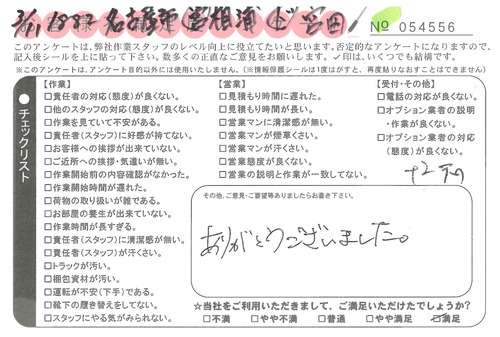 № 054556
このアンケートは、弊社作業スタッフのレベル向上に役立てたいと思います。否定的なアンケートになりますので、
記入後シールを上に貼って下さい。数多くの正直なご意見をお願いします。✓印は、いくつでも結構です。
※このアンケートは、アンケート目的以外には使用いたしません。(※情報保護シールは1度はがすと、再度貼りなおすことはできません)
チェックリスト
【作業】
□責任者の対応(態度)が良くない。
□他のスタッフの対応(態度)が良くない。
□作業を見ていて不安がある。
□責任者(スタッフ)に好感が持てない。
□お客様への挨拶が出来ていない。
□ご近所への挨拶・気遣いが無い。
□作業開始前の内容確認がなかった。
□作業開始時間が遅れた。
□荷物の取り扱いが雑である。
□お部屋の養生が出来ていない。
□作業時間が長すぎる。
□責任者(スタッフ)に清潔感が無い。
□責任者(スタッフ)が汗くさい。
□トラックが汚い。
□梱包資材が汚い。
□運転が不安(下手)である。
□靴下の履き替えをしてない。
□スタッフにやる気がみられない。
【営業】
□見積もり時間に遅れた。
□見積もり時間が長い。
□営業マンに清潔感が無い。
□営業マンが煙草くさい。
□営業マンが汗くさい。
□営業態度が良くない。
□営業の説明と作業が一致してない。
【受付・その他】
□電話の対応が良くない。
□オプション業者の説明
・作業が良くない。
□オプション業者の対応
(態度)が良くない。
その他、ご意見・ご要望等ありましたらお書き下さい。
ありがとうございました。
☆当社をご利用いただきまして、ご満足いただけたでしょうか?
□不満 □やや不満 □普通 □やや満足 ☑満足